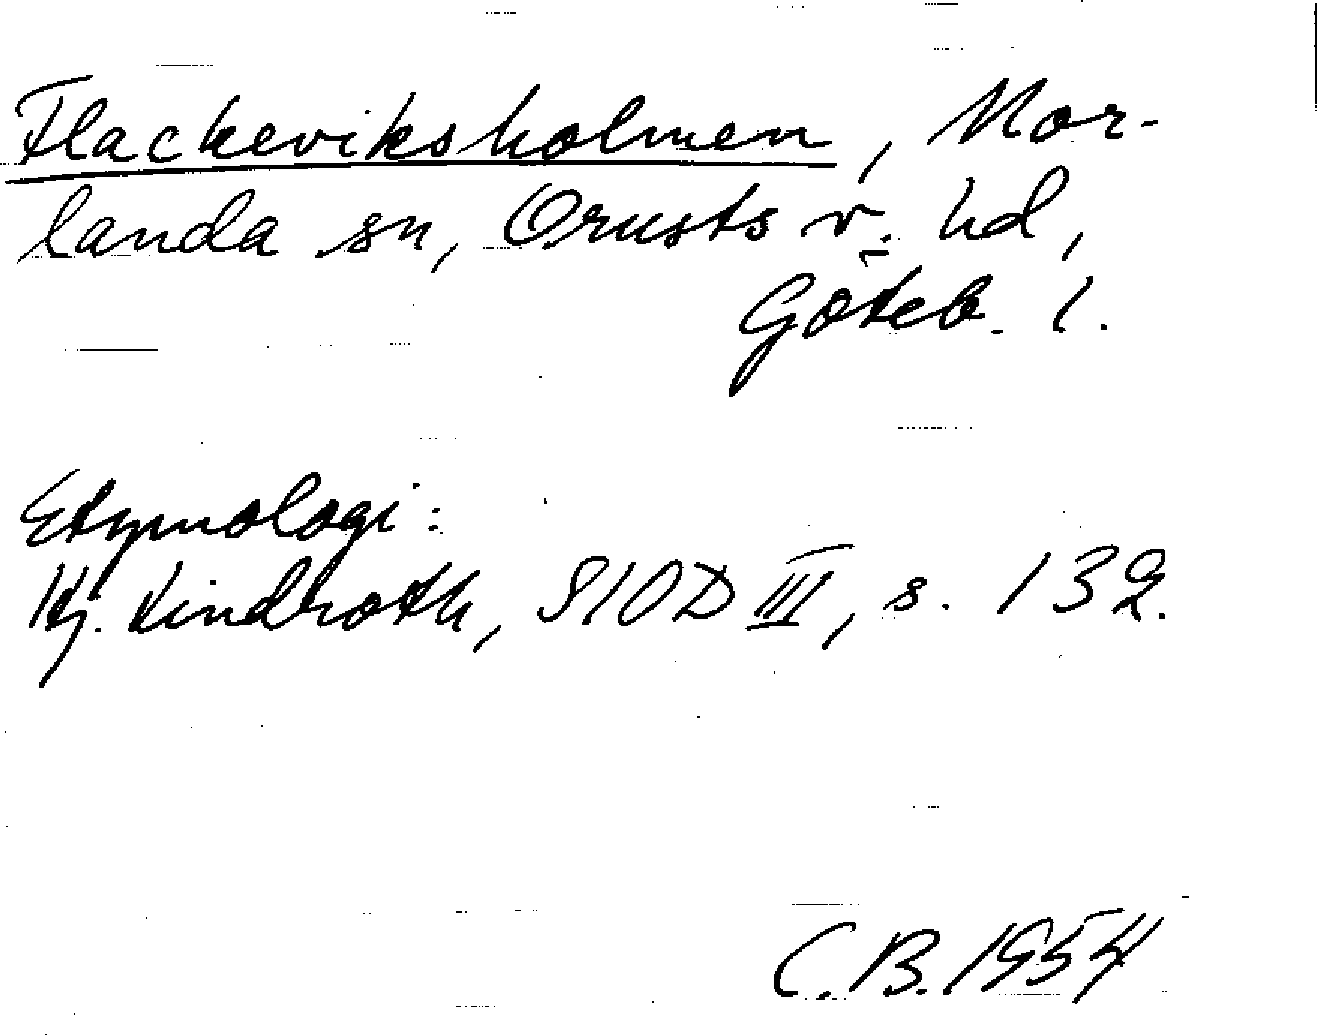 Flackeviksholmen, Mor-
landa sn, Orusts v. hd,
Göteb. l.
Etymologi:
Hj. Lindroth, SIOD III, s. 132.
C.B. 1954